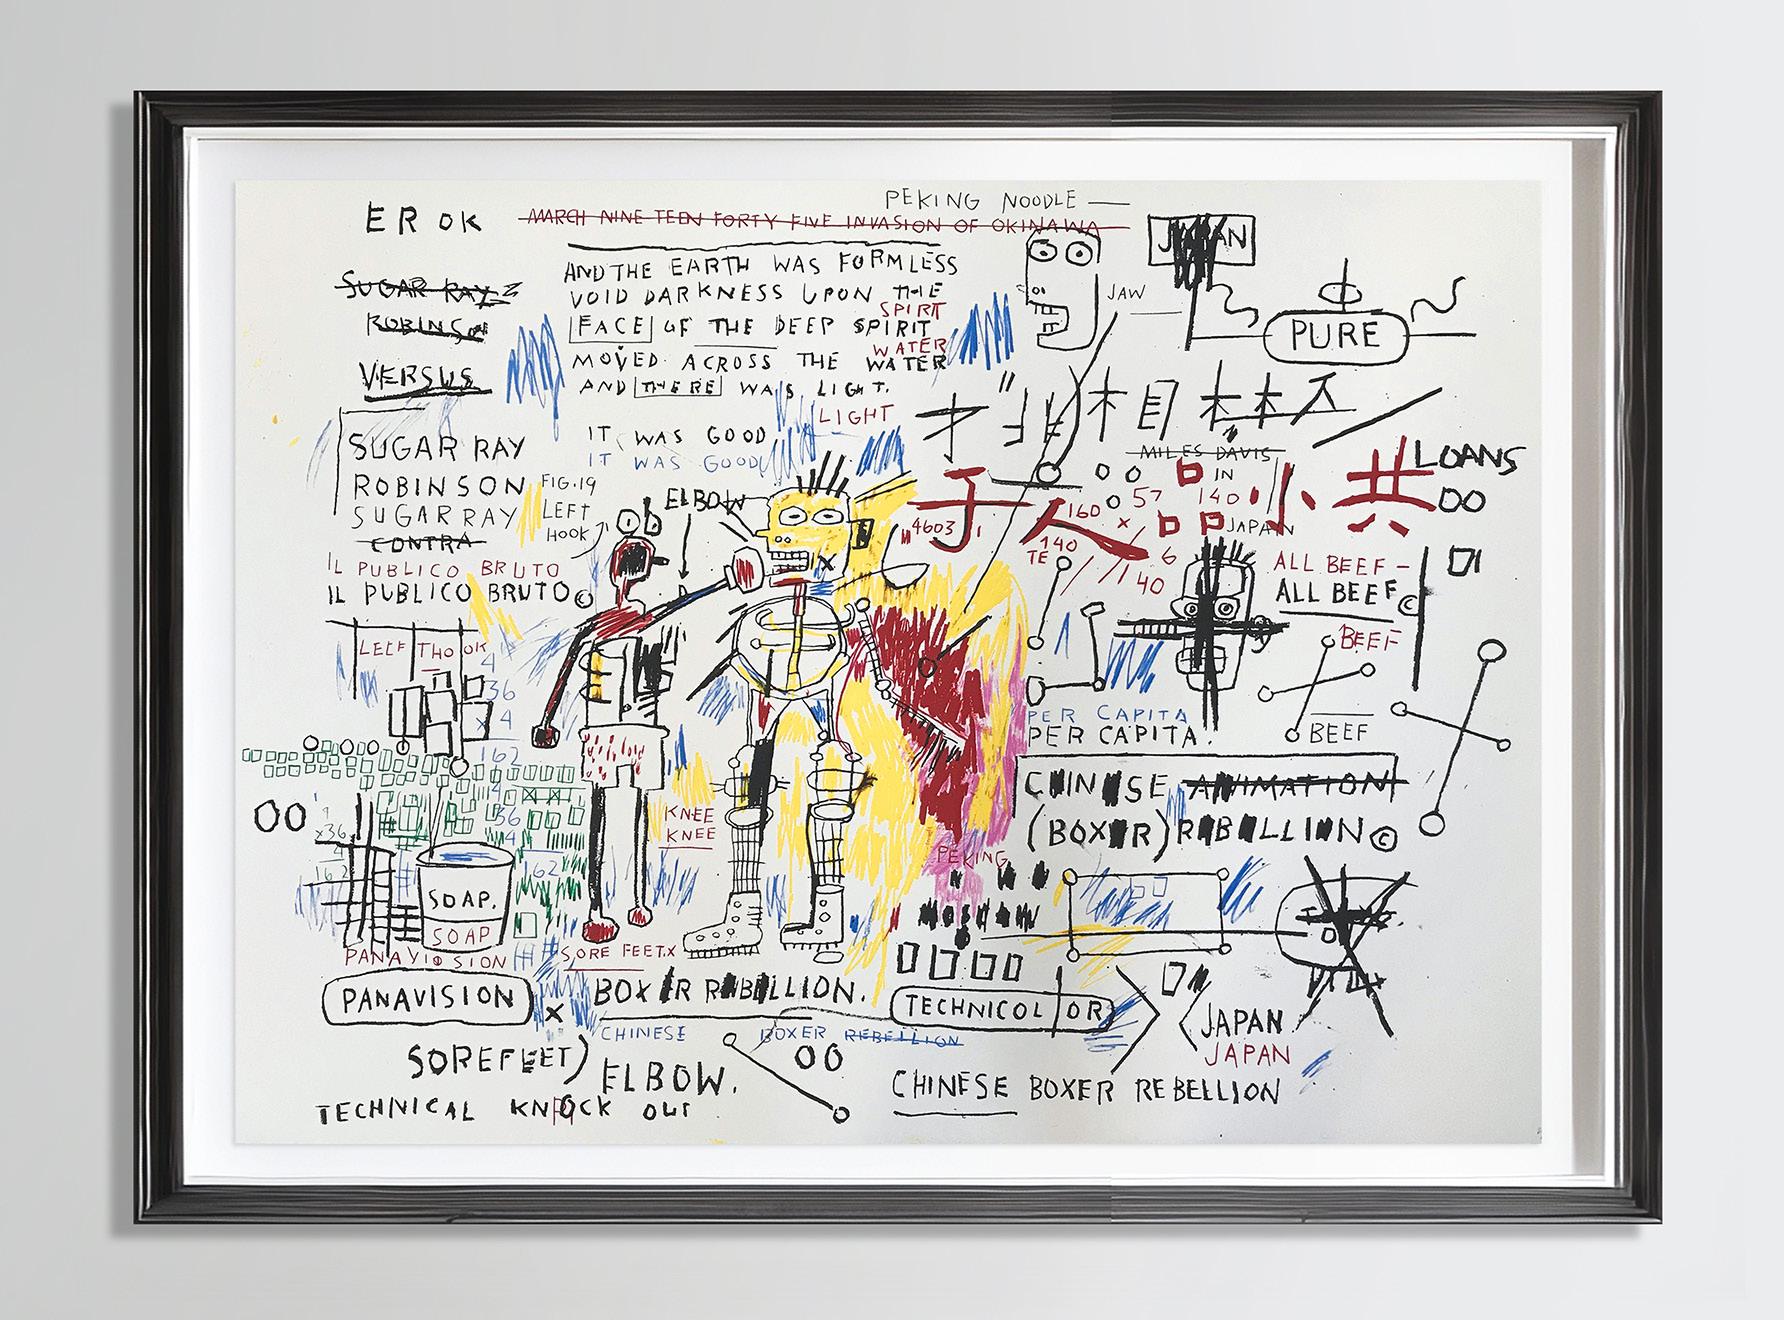 PEKING NOODLE —
EROK
MARCH NINETEEN FORTY FIVE INVASION OF OKINAWA
JAPAN
SUGAR RAY
ROBINSON
VERSUS
AND THE EARTH WAS FORMLESS
VOID DARKNESS UPON THE
SPIRIT
FACE OF THE DEEP SPIRIT
WATER
MOVED ACROSS THE WATER
AND THERE WAS LIGHT.
LIGHT
IT WAS GOOD
IT WAS GOOD
JAW
PURE
SUGAR RAY
ROBINSON
SUGAR RAY
CONTRA
IL PUBLICO BRUTO
IL PUBLICO BRUTO©
FIG.19
LEFT
HOOK
ELBOW
MILES DAVIS
IN
JAPAN
LOANS
00
4603
57
140
160
140
TE
6
40
ALL BEEF –
ALL BEEF©
BEEF
BEEF
LEEF THOOK
4
36
x 4
162
4
36
4
162
00
x36
4
162
KNEE
KNEE
SOAP.
SOAP
PANAVISION
PANAVISION
SORE FEET.X
X
BOXER REBELLION.
CHINESE BOXER REBELLION
PER CAPITA
PER CAPITA.
CHINESE ANIMATION
(BOXER) REBELLION©
PEKING
TECHNICOLOR
JAPAN
JAPAN
SOREFEET)
ELBOW.
00
TECHNICAL KNOCK OUT
CHINESE BOXER REBELLION